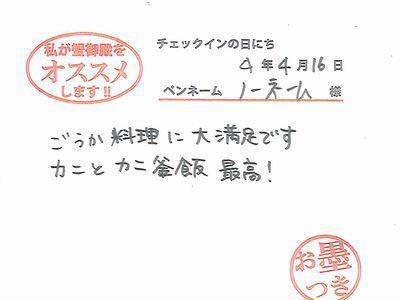 私が蟹御殿を
オススメ
します!!
チェックインの日にち
4年4月16日
ペンネーム ノーネーム 様
ごうか料理に大満足です
カニとカニ釜飯 最高!
お墨
つき